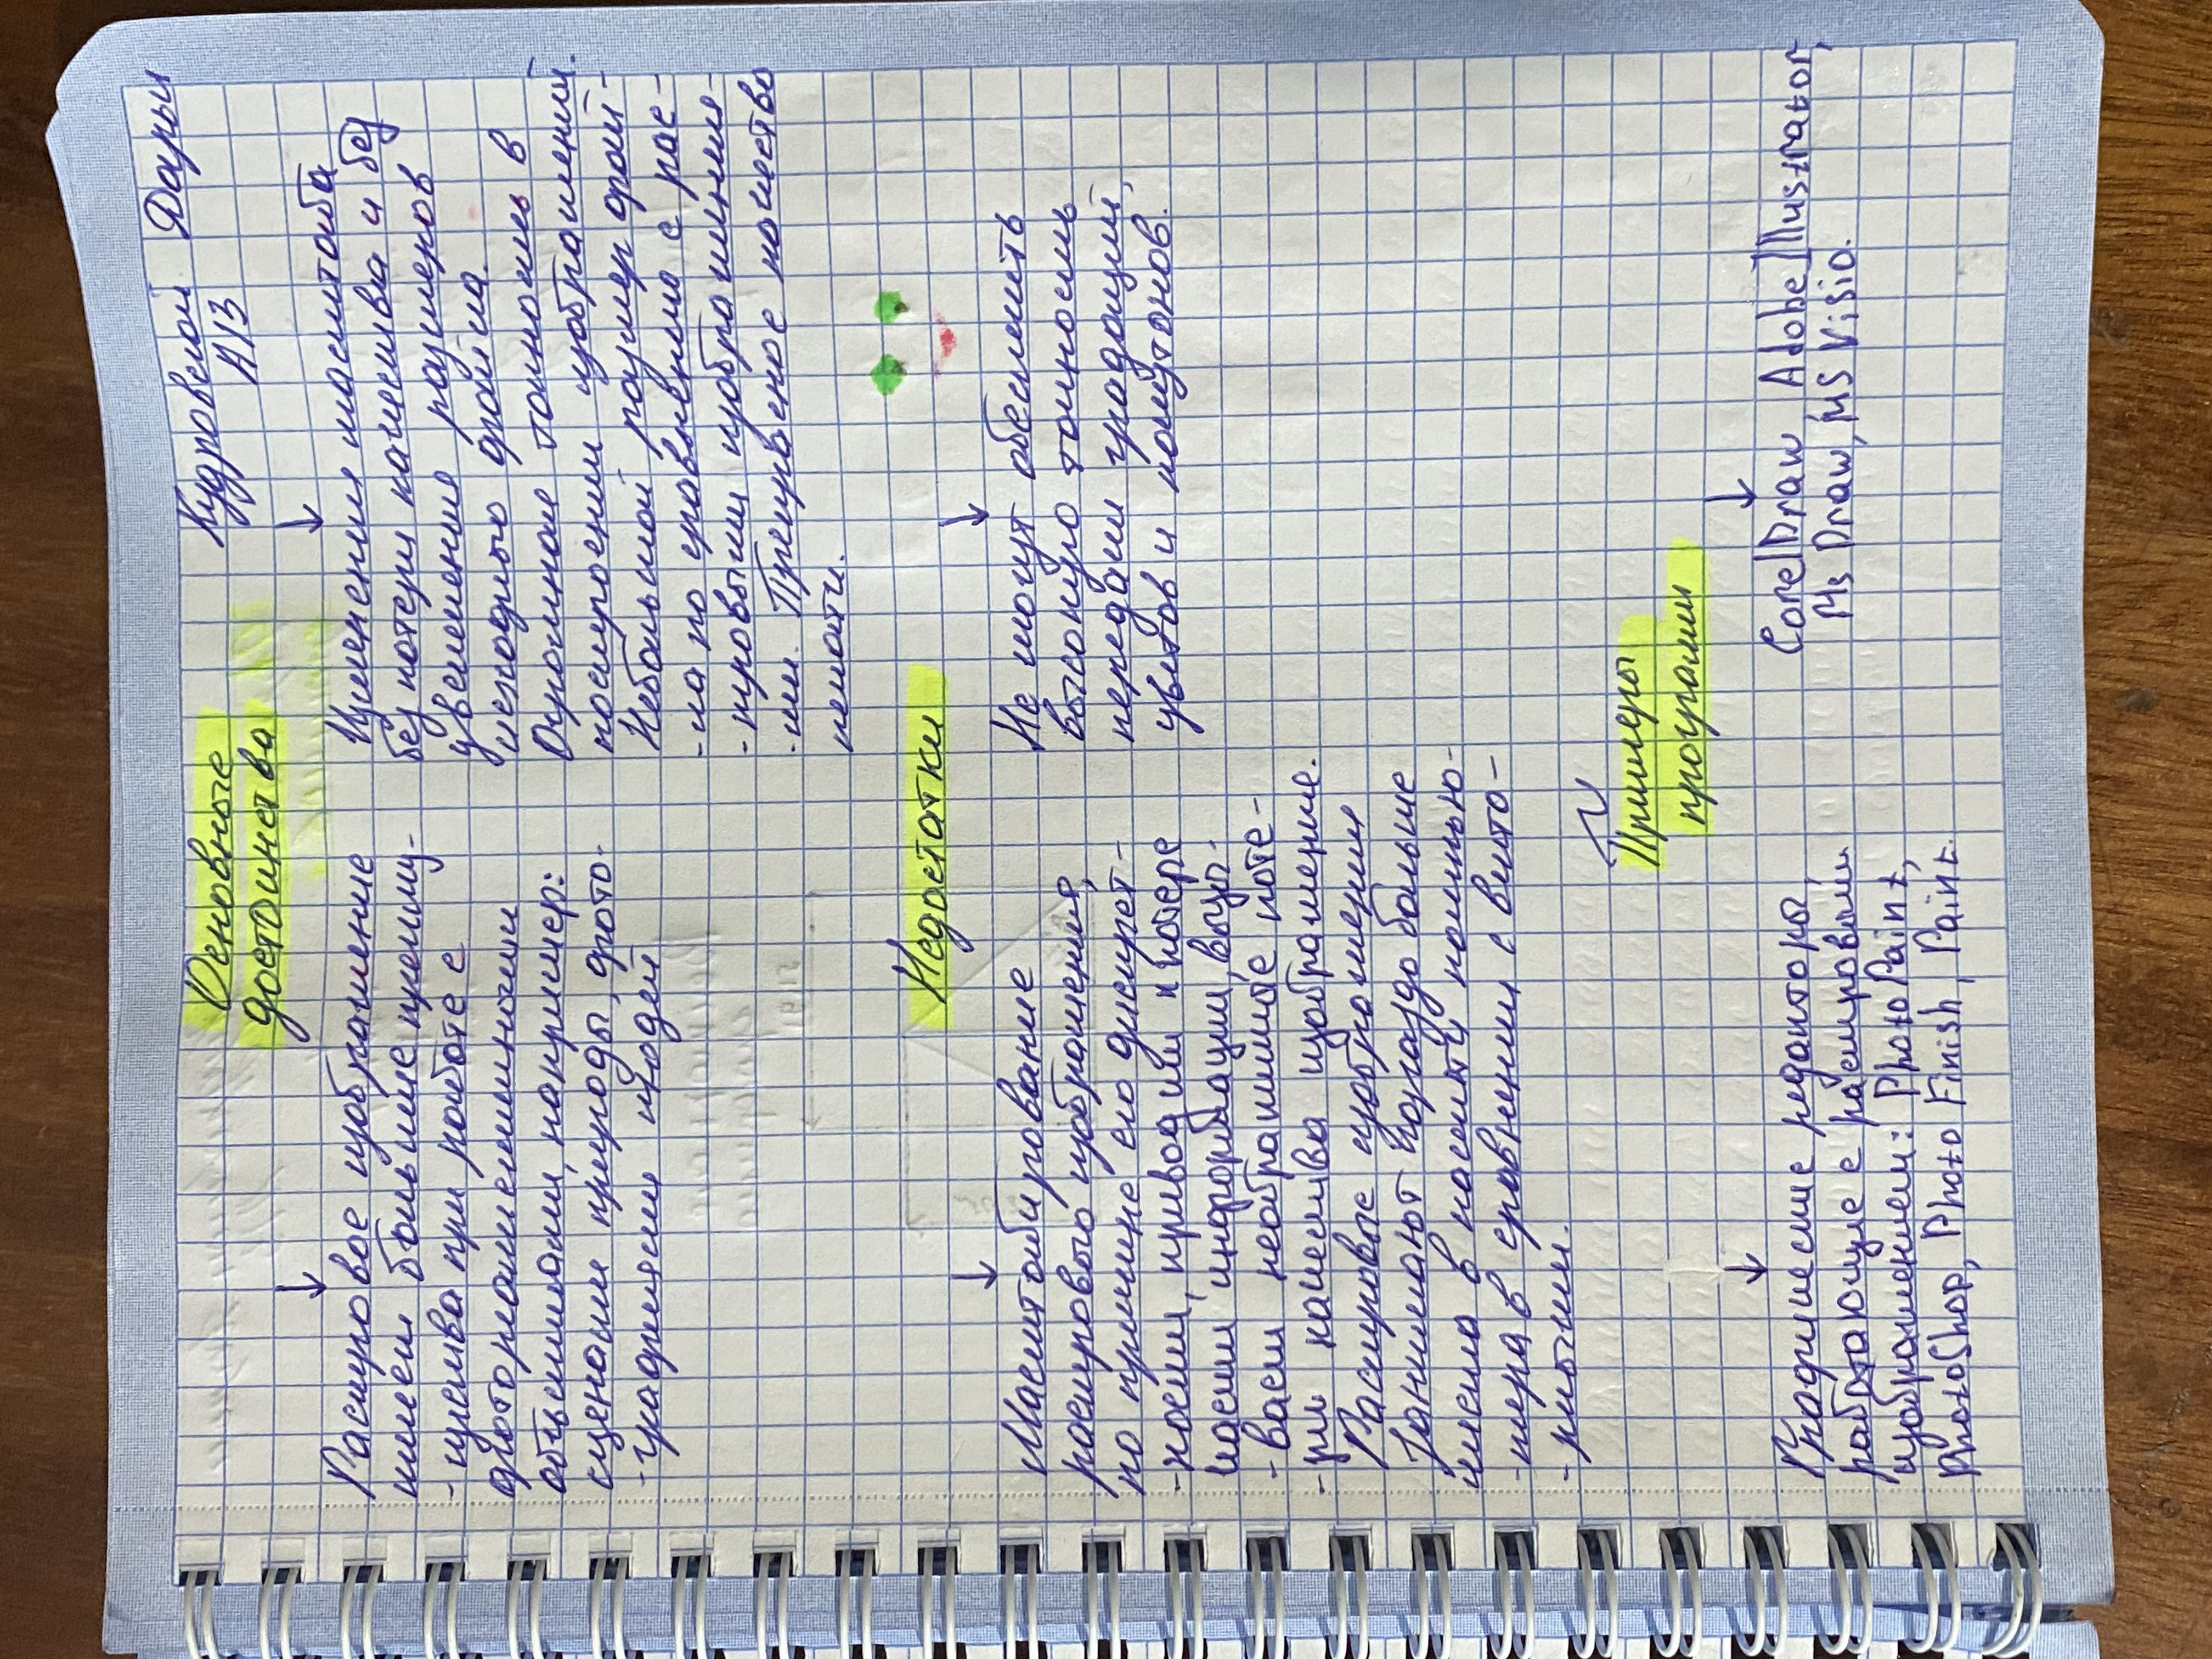 Кудровской Дарьи
А13
Основные
достоинства
Растровое изображение
имеет большие преиму-
-щества при работе с
фотореалистичными
объектами, например:
сценами природы, фото-
-графиями людей
Изменения масштаба
без потери качества и без
увеличения размеров
исходного файла.
Огромная точность в
построении изображений.
Небольшой размер фай-
-ла по сравнению с рас-
-тровыми изображения-
-ми. Прекрасное качество
печати.
Недостатки
Масштабирование
растрового изображения,
по причине его дискрет-
-ности, приводили к потере
ности информации,
-вает необратимые поте-
-ри качества изображение.
Растровые изображения
занимают гораздо больше
места в памяти компью-
-тера в сравнении с векто-
-рными.
Не могут обеспечить
высокую точность
передачи градаций,
цветов и полутонов.
Примеры
программ
Графические редакторы,
работающие с растровыми
изображением: PhotoPaint,
PhotoShop, Photo Finish, Paint.
CorelDraw Adobe Illustrator,
Ms Draw, MS Visio.